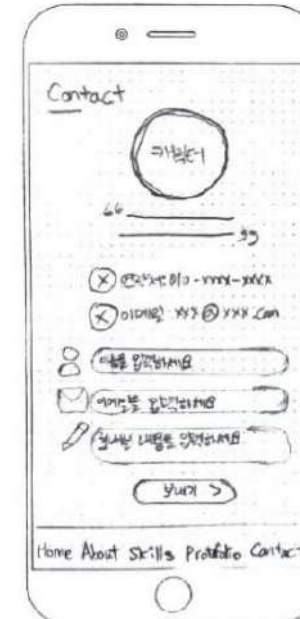 Contact
캐릭터
“
”
연락처: 010-xxxx-xxxx
이메일 xxx@xxx.com
이름을 입력하세요
이메일을 입력하세요
보내실 내용을 입력하세요
보내기 >
Home About Skills Protfolio Contact